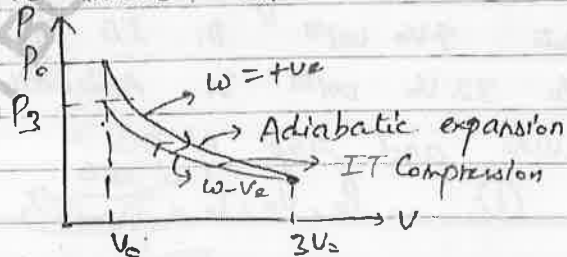 P
P₀
w = +ve
P3
Adiabatic expansion
IT Compression
w-ve
V
V₀
3V₀